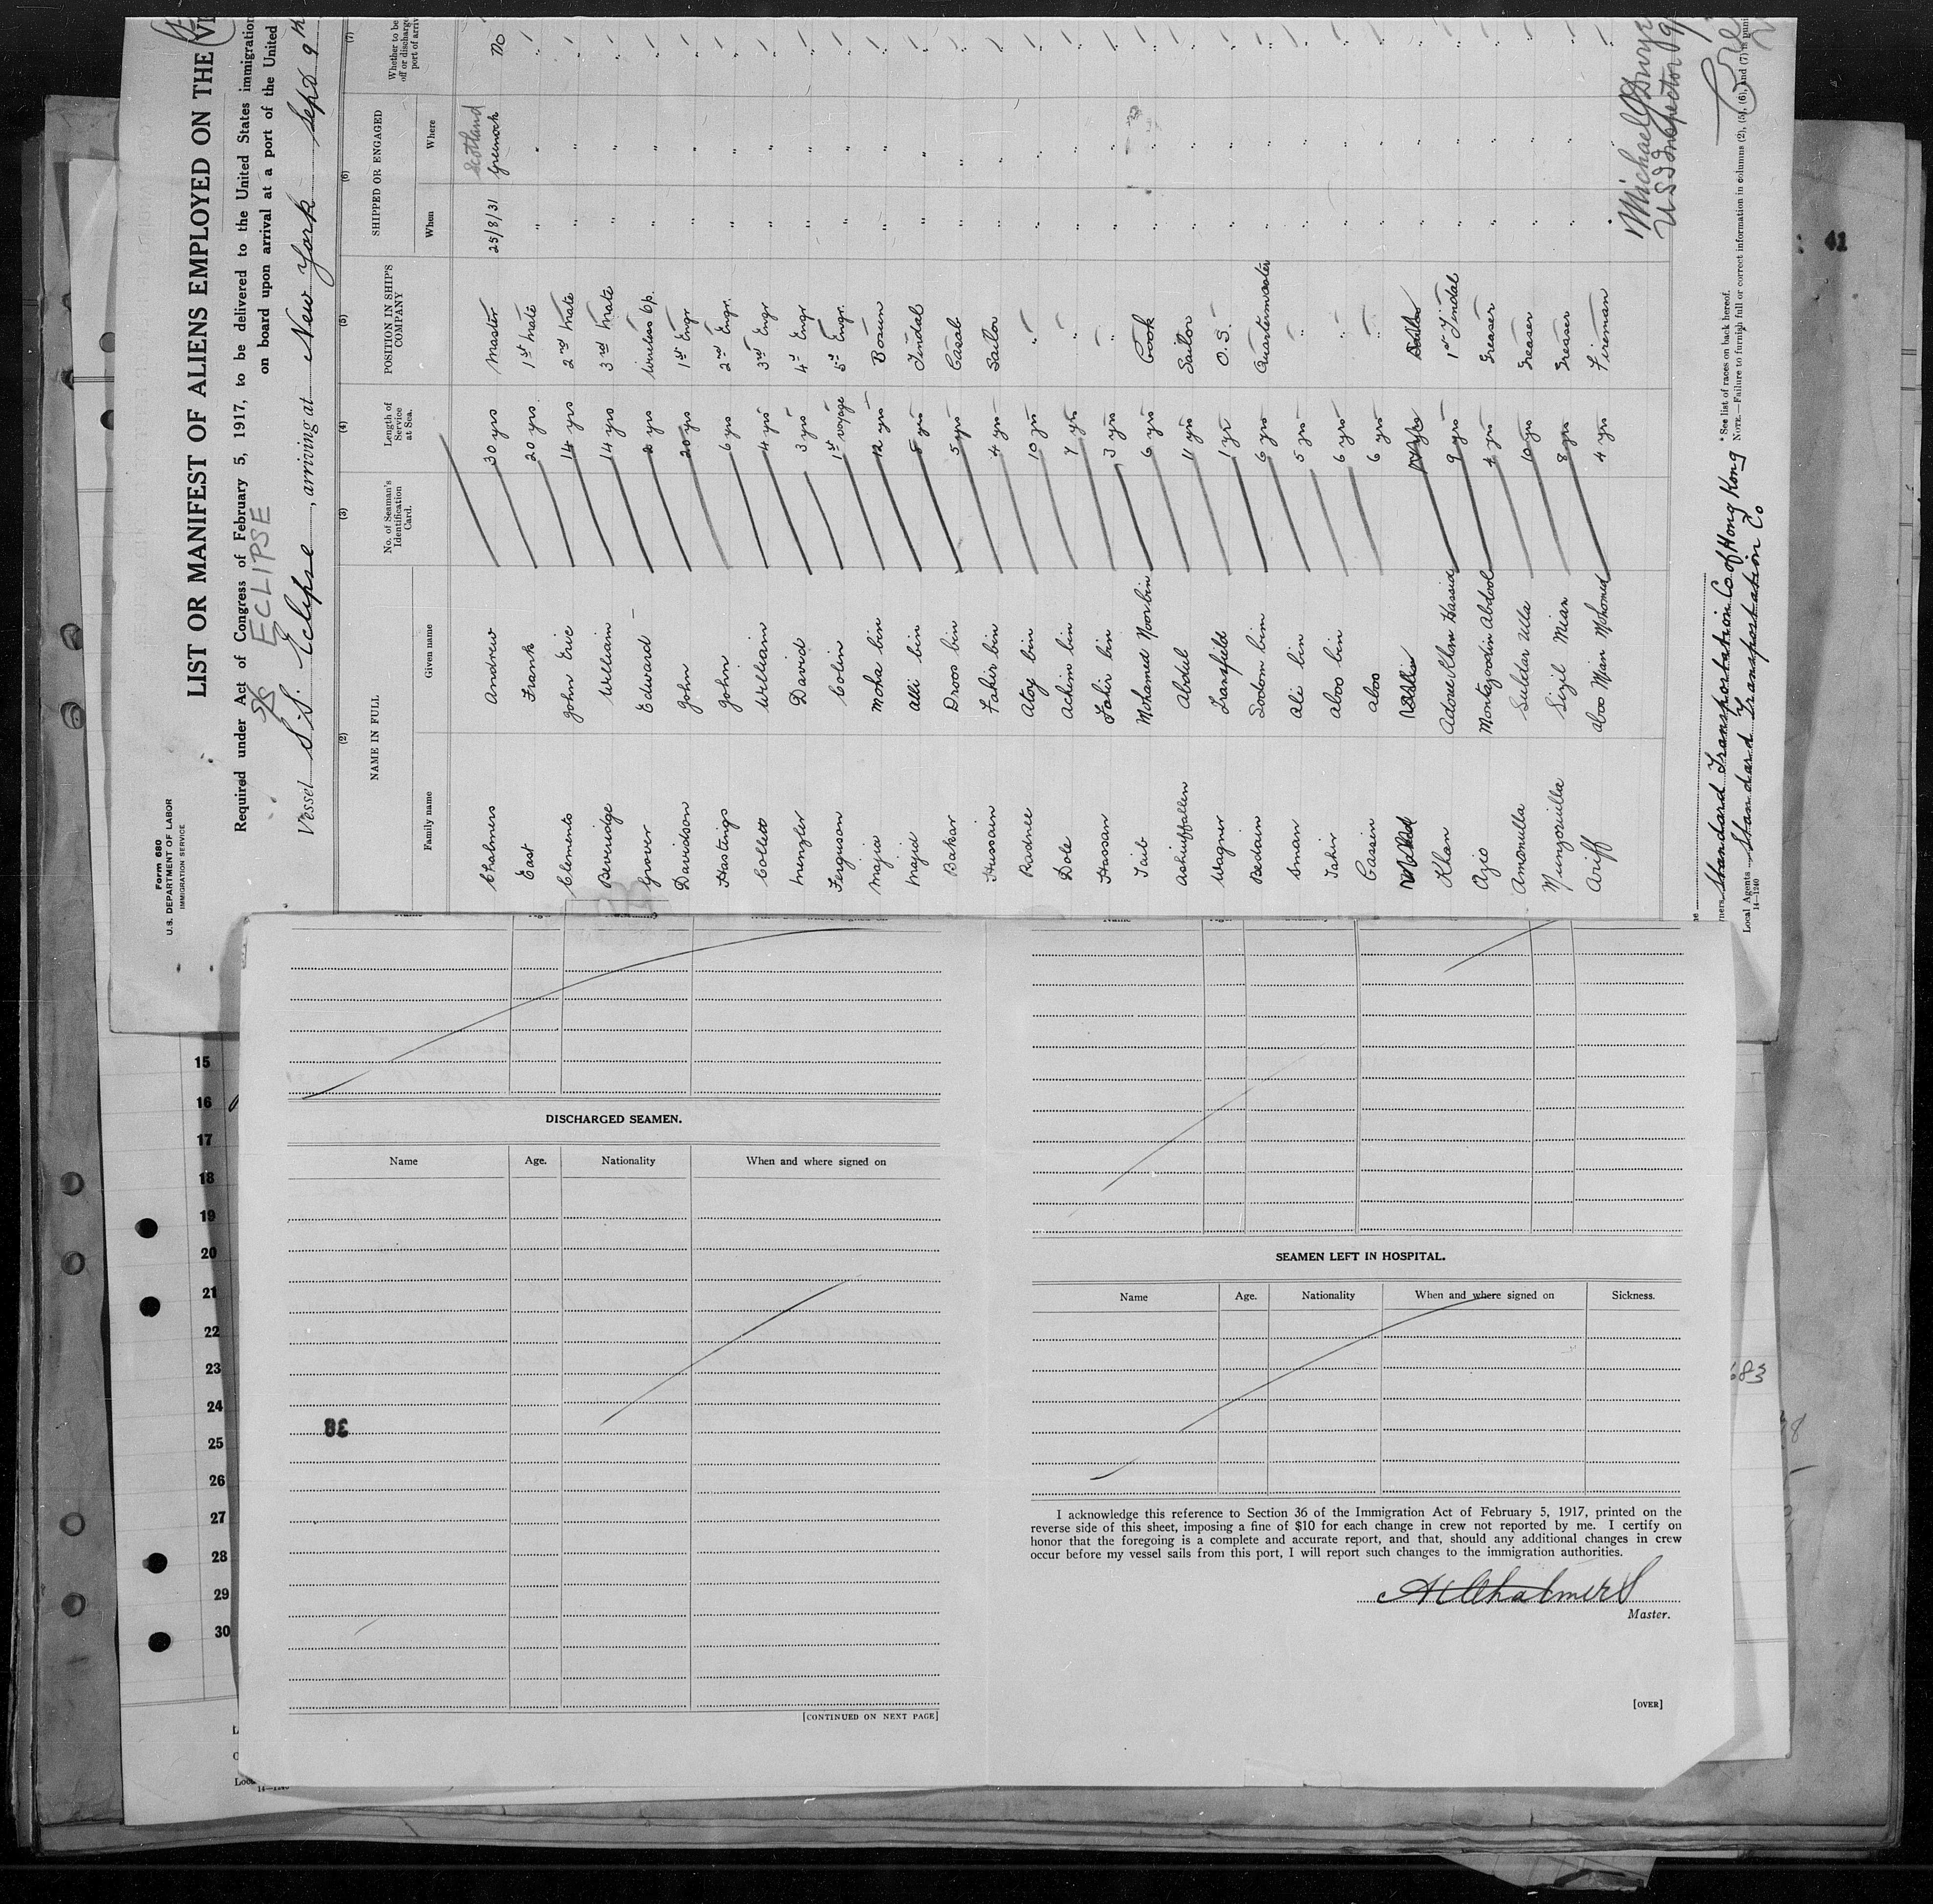 Form 680
U.S. DEPARTMENT OF LABOR
IMMIGRATION SERVICE
LIST OR MANIFEST OF ALIENS EMPLOYED ON THE
Required under Act of Congress of February 5, 1917, to be delivered to the United States immigration
on board upon arrival at a port of the United
SS ECLIPSE
Vessel S.S. Eclipse, arriving at New York Sept 9th
(2) (3) (4) (5) (6) (7)
NAME IN FULL
Family name Given name
No. of Seaman's Identification Card.
Length of Service at Sea.
POSITION IN SHIP'S COMPANY
SHIPPED OR ENGAGED
When Where
Whether to be
off or discharge
port of arriv
Scotland
Chalmers Andrew 30 yrs Master 25/8/31 Greenock No
East Frank 20 yrs 1st Mate " " "
Clements John Eric 14 yrs 2nd Mate " " "
Beveridge William 14 yrs 3rd Mate " " "
Grover Edward 2 yrs Wireless Op. " " "
Davidson John 20 yrs 1st Engr " " "
Hastings John 6 yrs 2nd Engr. " " "
Collett William 4 yrs 3rd Engr " " "
Menzler David 3 yrs 4th Engr " " "
Ferguson Colin 1st voyage 5th Engr. " " "
Majia Moha bin 12 yrs Bosun " " "
Majid Alli bin 8 yrs Tindal " " "
Bakar Droos bin 5 yrs Casab " " "
Hussain Fakir bin 4 yrs Sailor " " "
Radnee Atoy bin 10 yrs " " " "
Dole Achim bin 7 yrs " " " "
Hassan Jahir bin 3 yrs " " " "
Taib Mohamed Noor bin 6 yrs Cook " " "
Abdul 11 yrs Sailor " " "
Wagner Lansfield 1 yr O.S. " " "
Bedain Sodom bin 6 yrs Quartermaster " " "
Sman Ali bin 5 yrs " " " "
Tahir Aboo bin 6 yrs " " " "
Cassin Aboo 6 yrs " " " "
Khan 9 yrs 1st Tindal " " "
Azio Montazoodin Abdool 4 yrs Greaser " " "
Amonulla Sultar Ulla 10 yrs Greaser " " "
Munzorulla Sizil Mian 8 yrs Greaser " " "
Ariff Aboo Mian Mohomed 4 yrs Fireman " " "
Michael
U S I Inspector
Standard Transportation Co. of Hong Kong
Local Agents Standard Transportation Co
14—1240
* See list of races on back hereof.
NOTE.—Failure to furnish full or correct information in columns (2), (5), (6), and (7) is puni
41
15
16
17
18
19
20
21
22
23
24
25
26
27
28
29
30
DISCHARGED SEAMEN.
Name Age. Nationality When and where signed on
38
[CONTINUED ON NEXT PAGE]
SEAMEN LEFT IN HOSPITAL.
Name Age. Nationality When and where signed on Sickness.
I acknowledge this reference to Section 36 of the Immigration Act of February 5, 1917, printed on the
reverse side of this sheet, imposing a fine of $10 for each change in crew not reported by me. I certify on
honor that the foregoing is a complete and accurate report, and that, should any additional changes in crew
occur before my vessel sails from this port, I will report such changes to the immigration authorities.
A Chalmers
Master.
[OVER]